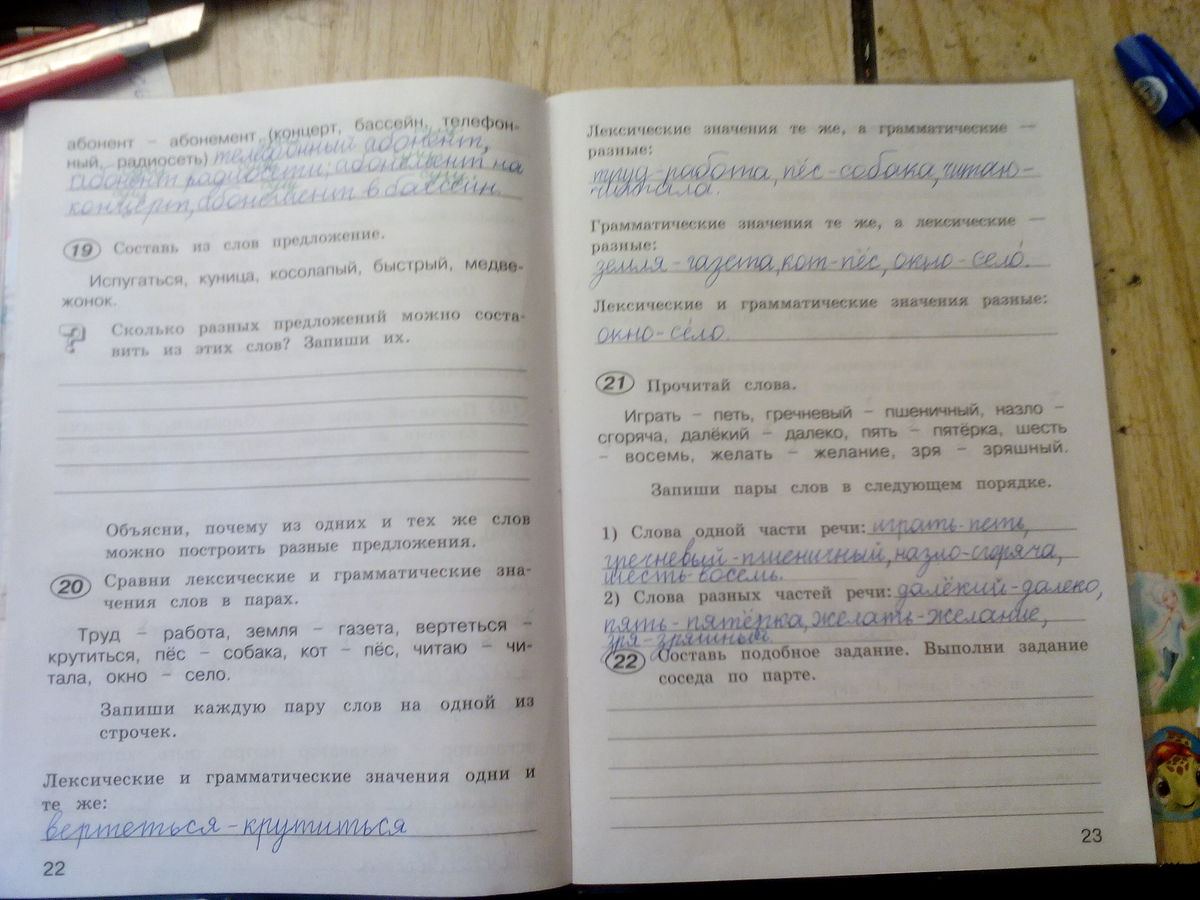 абонент – абонемент (концерт, бассейн, телефон-
ный, радиосеть) телефонный абонент,
абонент радиосети; абонемент на
концерт, абонемент в бассейн.
19 Составь из слов предложение.
Испугаться, куница, косолапый, быстрый, медве-
жонок.
? Сколько разных предложений можно соста-
вить из этих слов? Запиши их.
Объясни, почему из одних и тех же слов
можно построить разные предложения.
20 Сравни лексические и грамматические зна-
чения слов в парах.
Труд – работа, земля – газета, вертеться –
крутиться, пёс – собака, кот – пёс, читаю – чи-
тала, окно – село.
Запиши каждую пару слов на одной из
строчек.
Лексические и грамматические значения одни и
те же:
вертеться - крутиться
22
Лексические значения те же, а грамматические —
разные:
труд-работа, пёс-собака, читаю-
читала.
Грамматические значения те же, а лексические —
разные:
земля-газета, кот-пёс, окно-село́.
Лексические и грамматические значения разные:
окно-се́ло.
21 Прочитай слова.
Играть – петь, гречневый – пшеничный, назло –
сгоряча, далёкий – далеко, пять – пятёрка, шесть
– восемь, желать – желание, зря – зряшный.
Запиши пары слов в следующем порядке.
1) Слова одной части речи: играть-петь,
гречневый-пшеничный, назло-сгоряча,
шесть-восемь.
2) Слова разных частей речи: далёкий-далеко,
пять-пятёрка, желать-желание,
зря-зряшный.
22 Составь подобное задание. Выполни задание
соседа по парте.
23